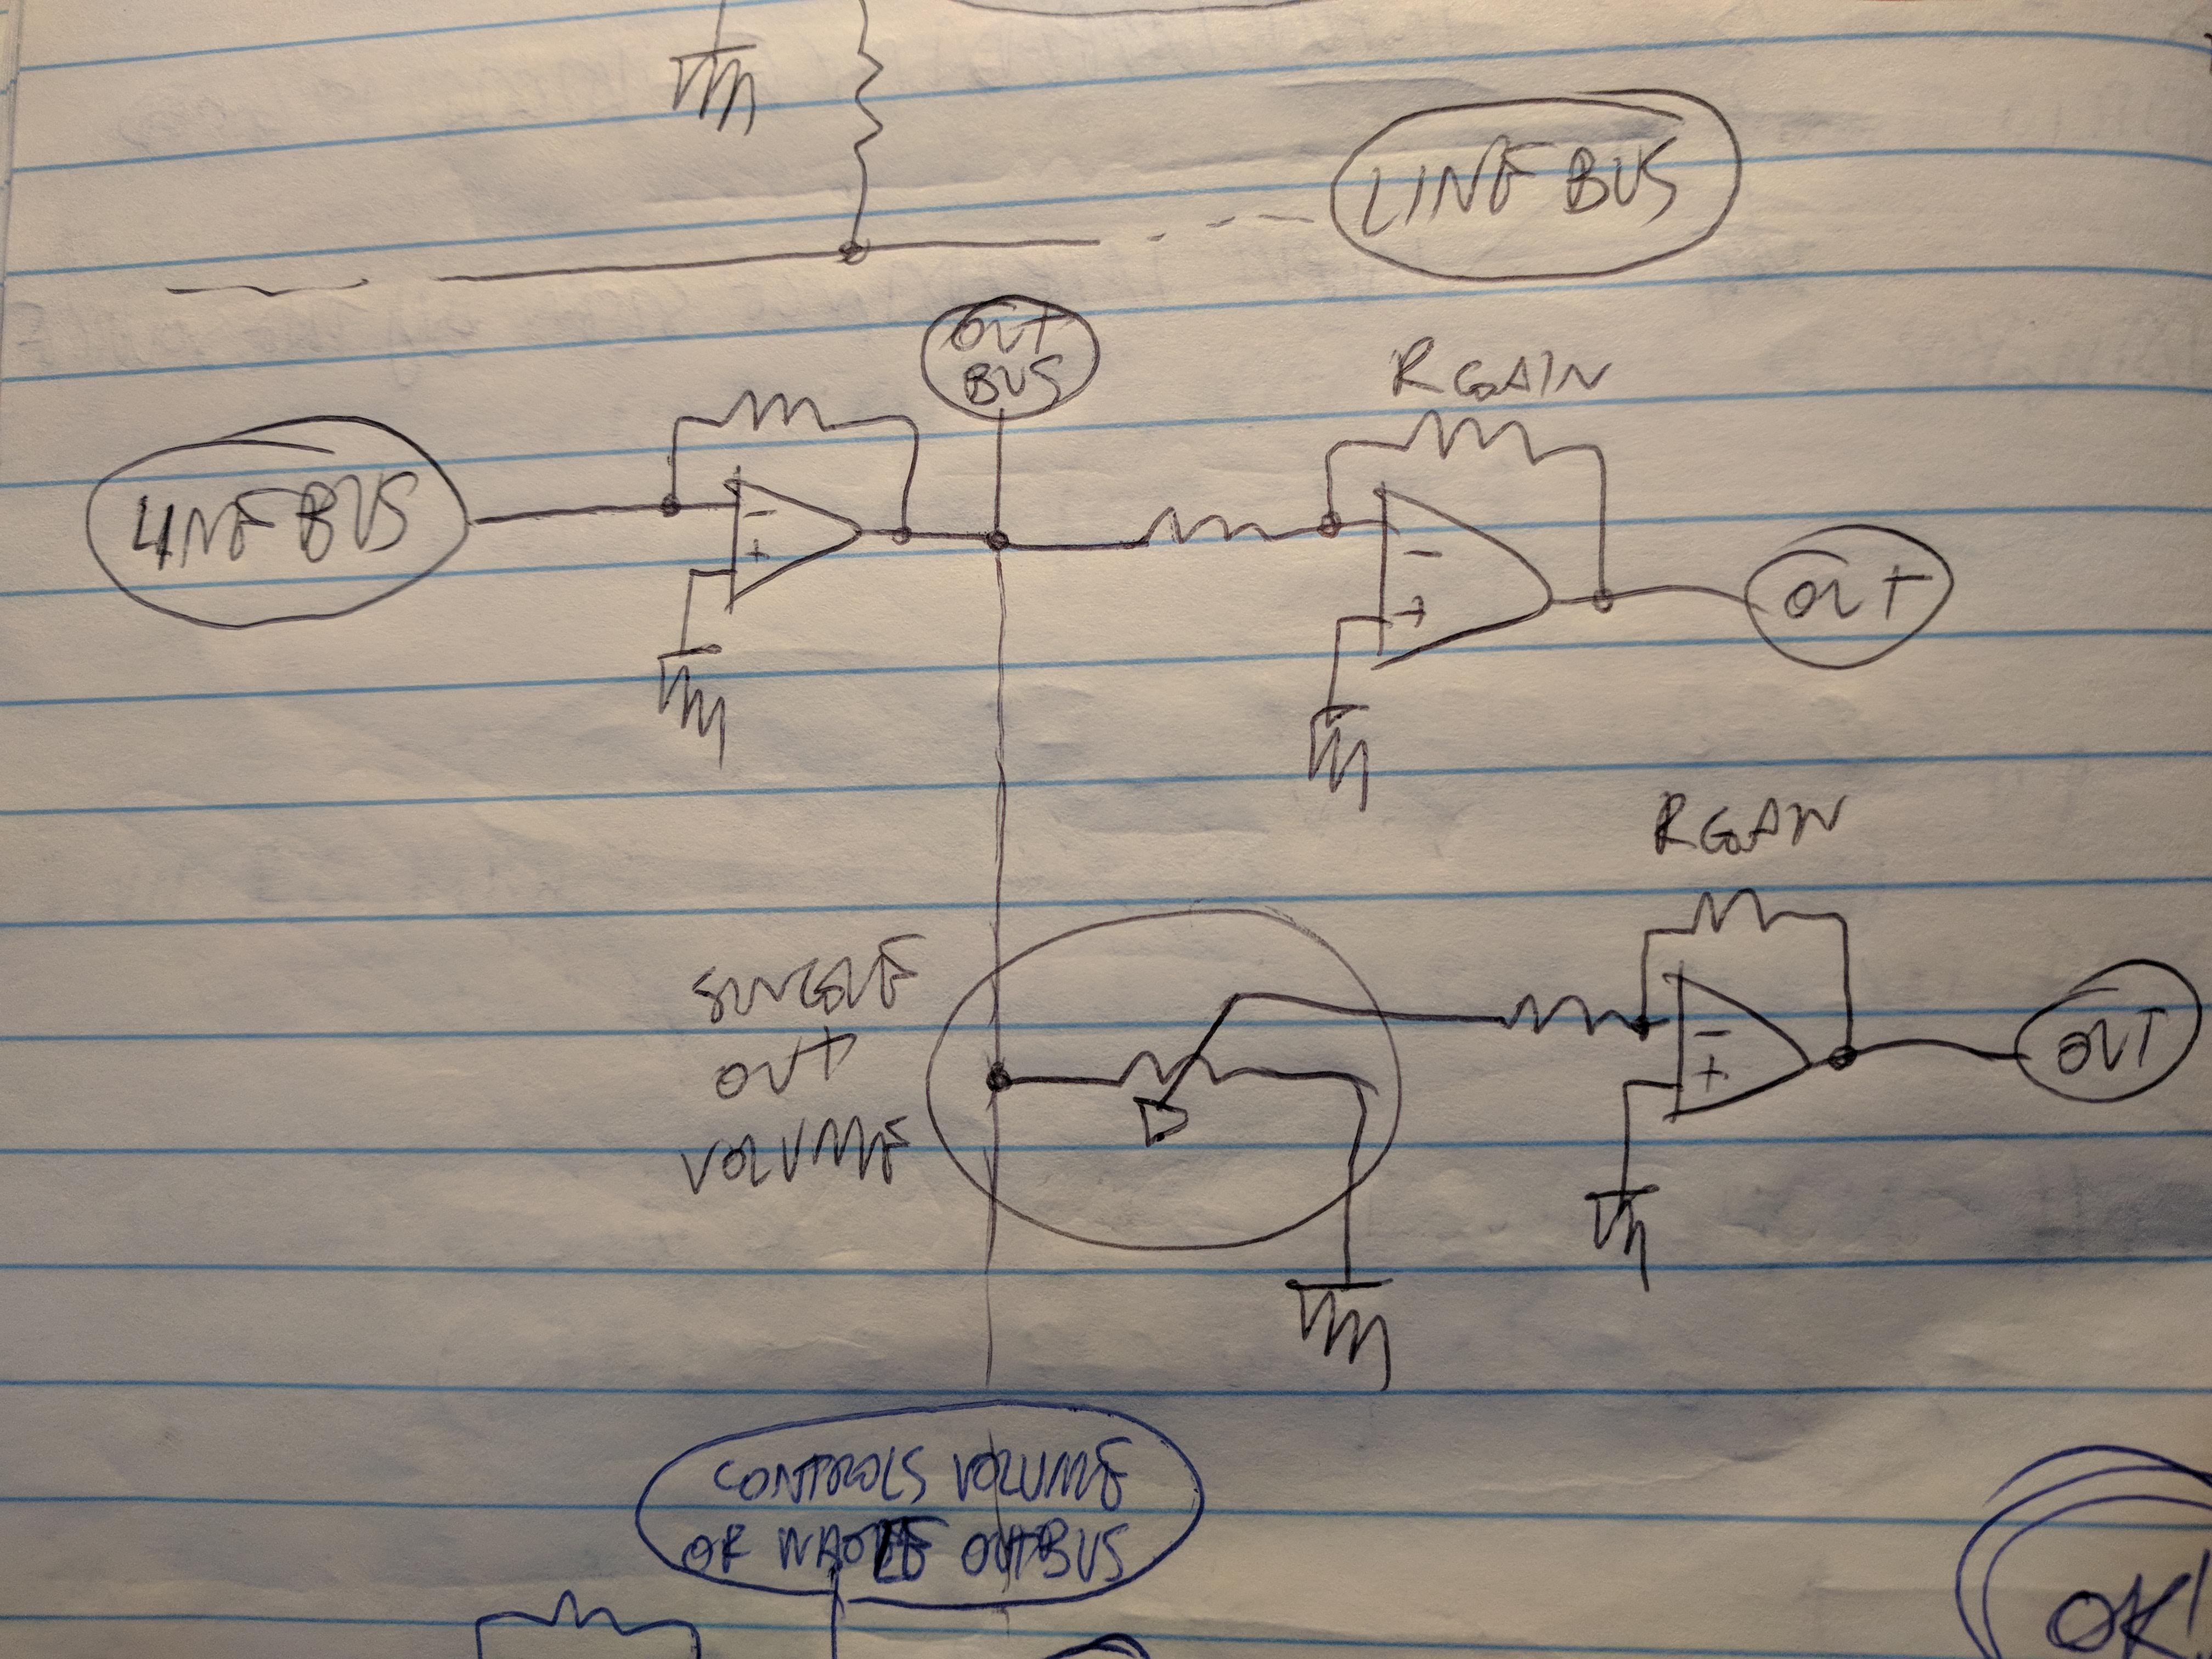 LINE BUS
OUT
BUS
R GAIN
LINE BUS
-
+
-
+
OUT
R GAIN
SINGLE
OUT
VOLUME
-
+
OUT
CONTROLS VOLUME
OF WHOLE OUTBUS
OK!